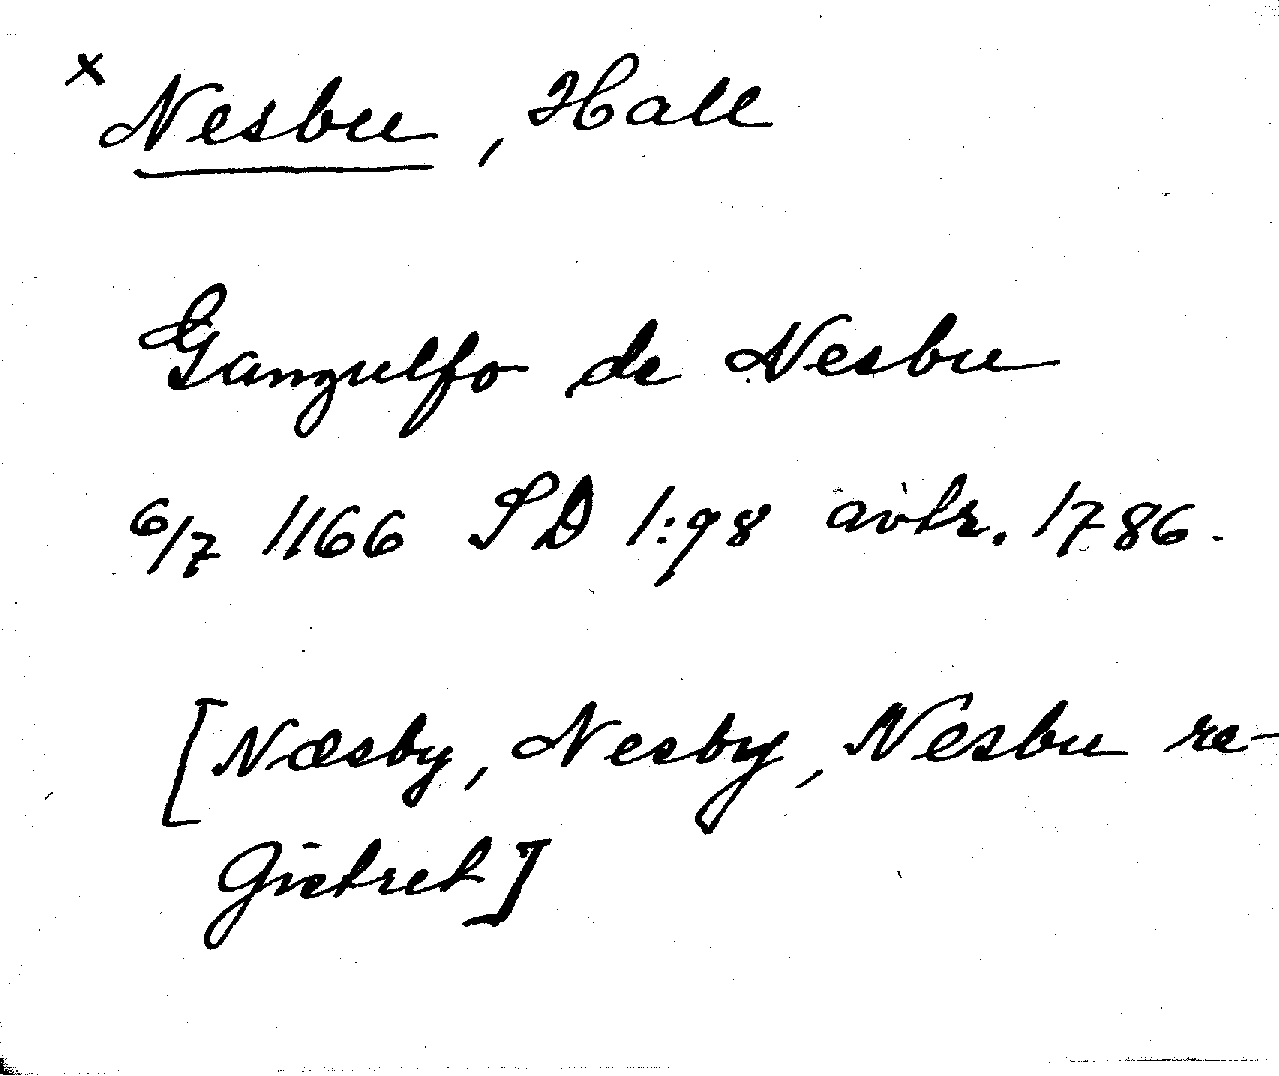 × Nesbu, Hall
Ganzulfo de Nesbu
6/7 1166 SD 1:98 avtr. 1786.
[Næsby, Nesby, Nesbu re-
gistret]